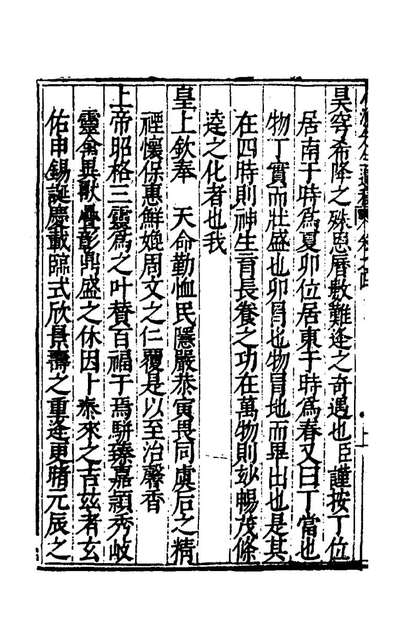 昊穹希隆之殊恩曆數難逢之奇遇也臣謹按丁位
居南于時爲夏卯位居東于時爲春又曰丁當也
物丁實而壯盛也卯冒也物冒地而畢出也是其
在四時則神生育長養之功在萬物則妙暢茂條
達之化者也我
皇上欽奉　天命勤恤民隱嚴恭寅畏同虞后之精
禋懷保惠鮮媲周文之仁覆是以至治馨香
上帝昭格三靈爲之叶賛百福于焉駢臻嘉穎秀岐
靈禽異獸疊彰鼎盛之休因卜泰來之吉兹者玄
佑申錫誕慶載臨式欣景壽之重逢更睹元辰之